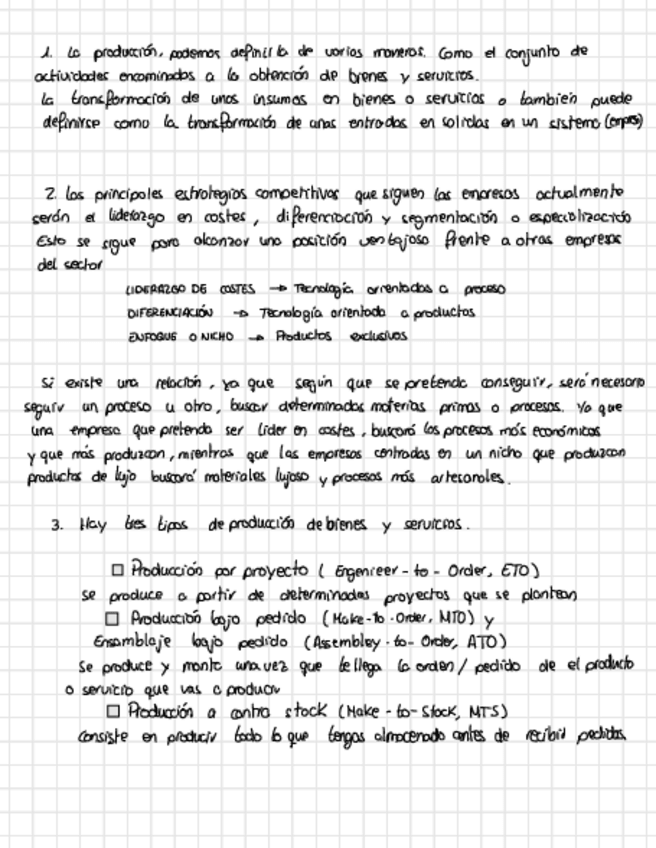 1. La producción, podemos definirla de varias maneras. Como el conjunto de
actividades encaminadas a la obtención de bienes y servicios.
La transformación de unos insumos en bienes o servicios o también puede
definirse como la transformación de unas entradas en salidas en un sistema
2. Las principales estrategias competitivas que siguen las empresas actualmente
serán el liderazgo en costes, diferenciación y segmentación o especialización
Esto se sigue para alcanzar una posición ventajosa frente a otras empresas
del sector
LIDERAZGO DE COSTES → Tecnología orientadas a proceso
DIFERENCIACIÓN → Tecnología orientada a productos
ENFOQUE O NICHO → Productos exclusivos
Si existe una relación, ya que según que se pretenda conseguir, será necesario
seguir un proceso u otro, buscar determinadas materias primas o procesos. Ya que
una empresa que pretenda ser líder en costes, buscará los procesos más económicos
y que más produzcan, mientras que las empresas centradas en un nicho que produzcan
productos de lujo buscará materiales lujoso y procesos más artesanales.
3. Hay tres tipos de producción de bienes y servicios.
□ Producción por proyecto (Engenieer-to-Order, ETO)
se produce a partir de determinados proyectos que se plantean
□ Producción bajo pedido (Make-to-Order, MTO) y
Ensamblaje bajo pedido (Assembley-to-Order, ATO)
Se produce y monta una vez que te llega la orden/pedido de el producto
o servicio que vas a producir
□ Producción a contra stock (Make-to-Stock, MTS)
Consiste en producir todo lo que tengas almacenado antes de recibir pedidos.